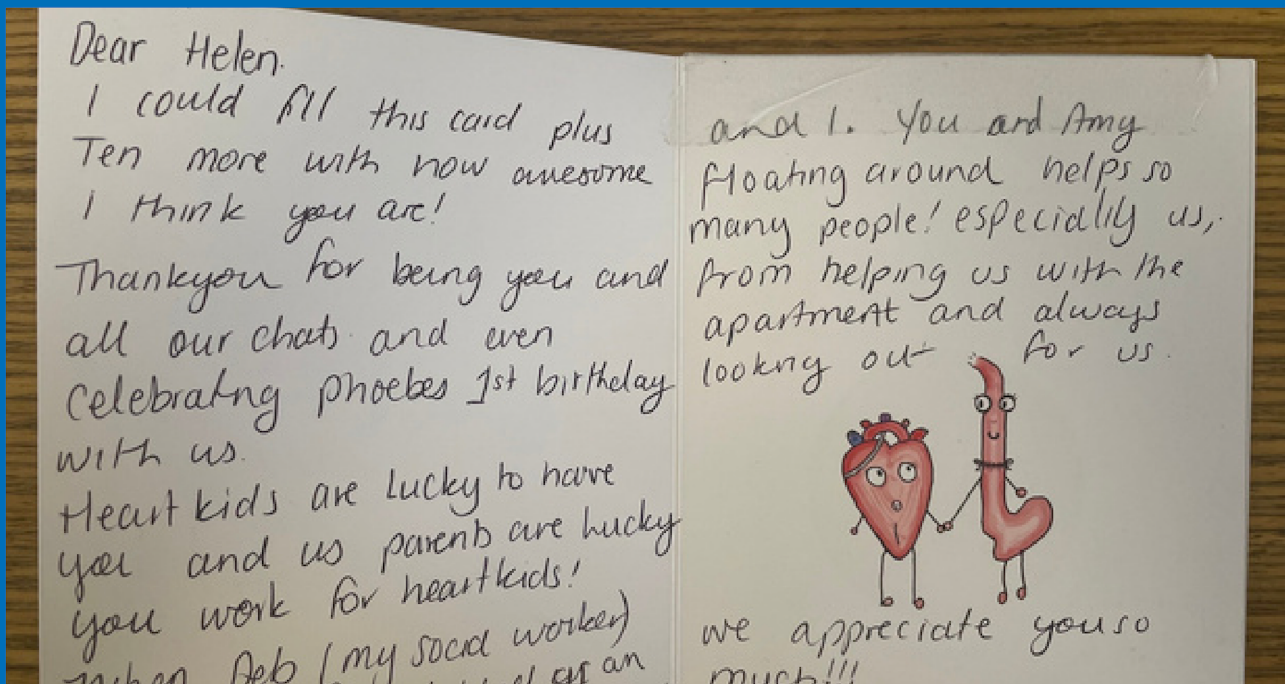 Dear Helen.
I could fill this card plus
Ten more with how awesome
I think you are!
Thankyou for being you and
all our chats and even
Celebrating phoebes 1st birthday
with us.
Heart kids are Lucky to have
you and us parents are lucky
you work for heartkids!
when Deb (my social worker)
an
and I. You and Amy
floating around helps so
many people! especially us,
from helping us with the
apartment and always
looking out for us.
we appreciate you so
much!!!